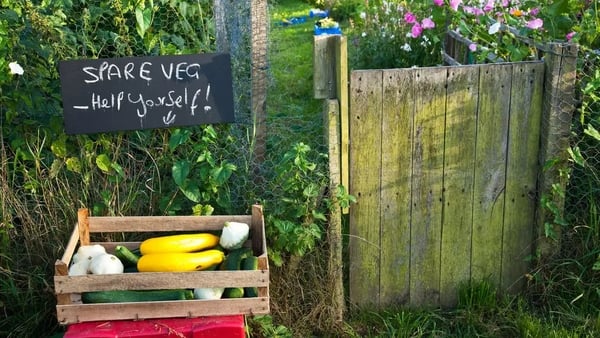 SPARE VEG
- Help yourself!